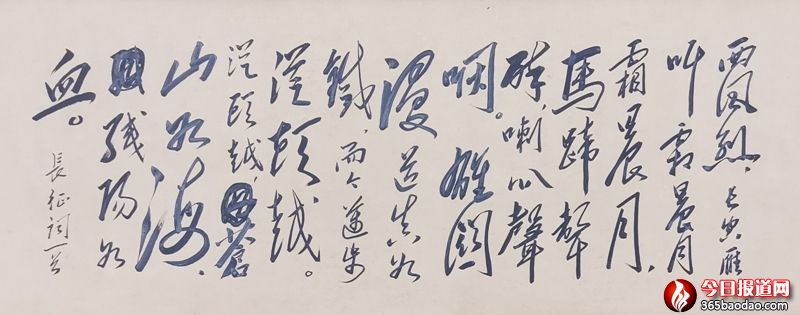 西风烈，长空雁
叫霜晨月
霜晨月，
馬蹄聲
碎，喇叭聲
咽。雄関
漫道真如
鐵，而今邁步
從頭越。
從頭越，蒼
山如海，
殘陽如
血。
長征词一首
今日报道网
365baodao.com